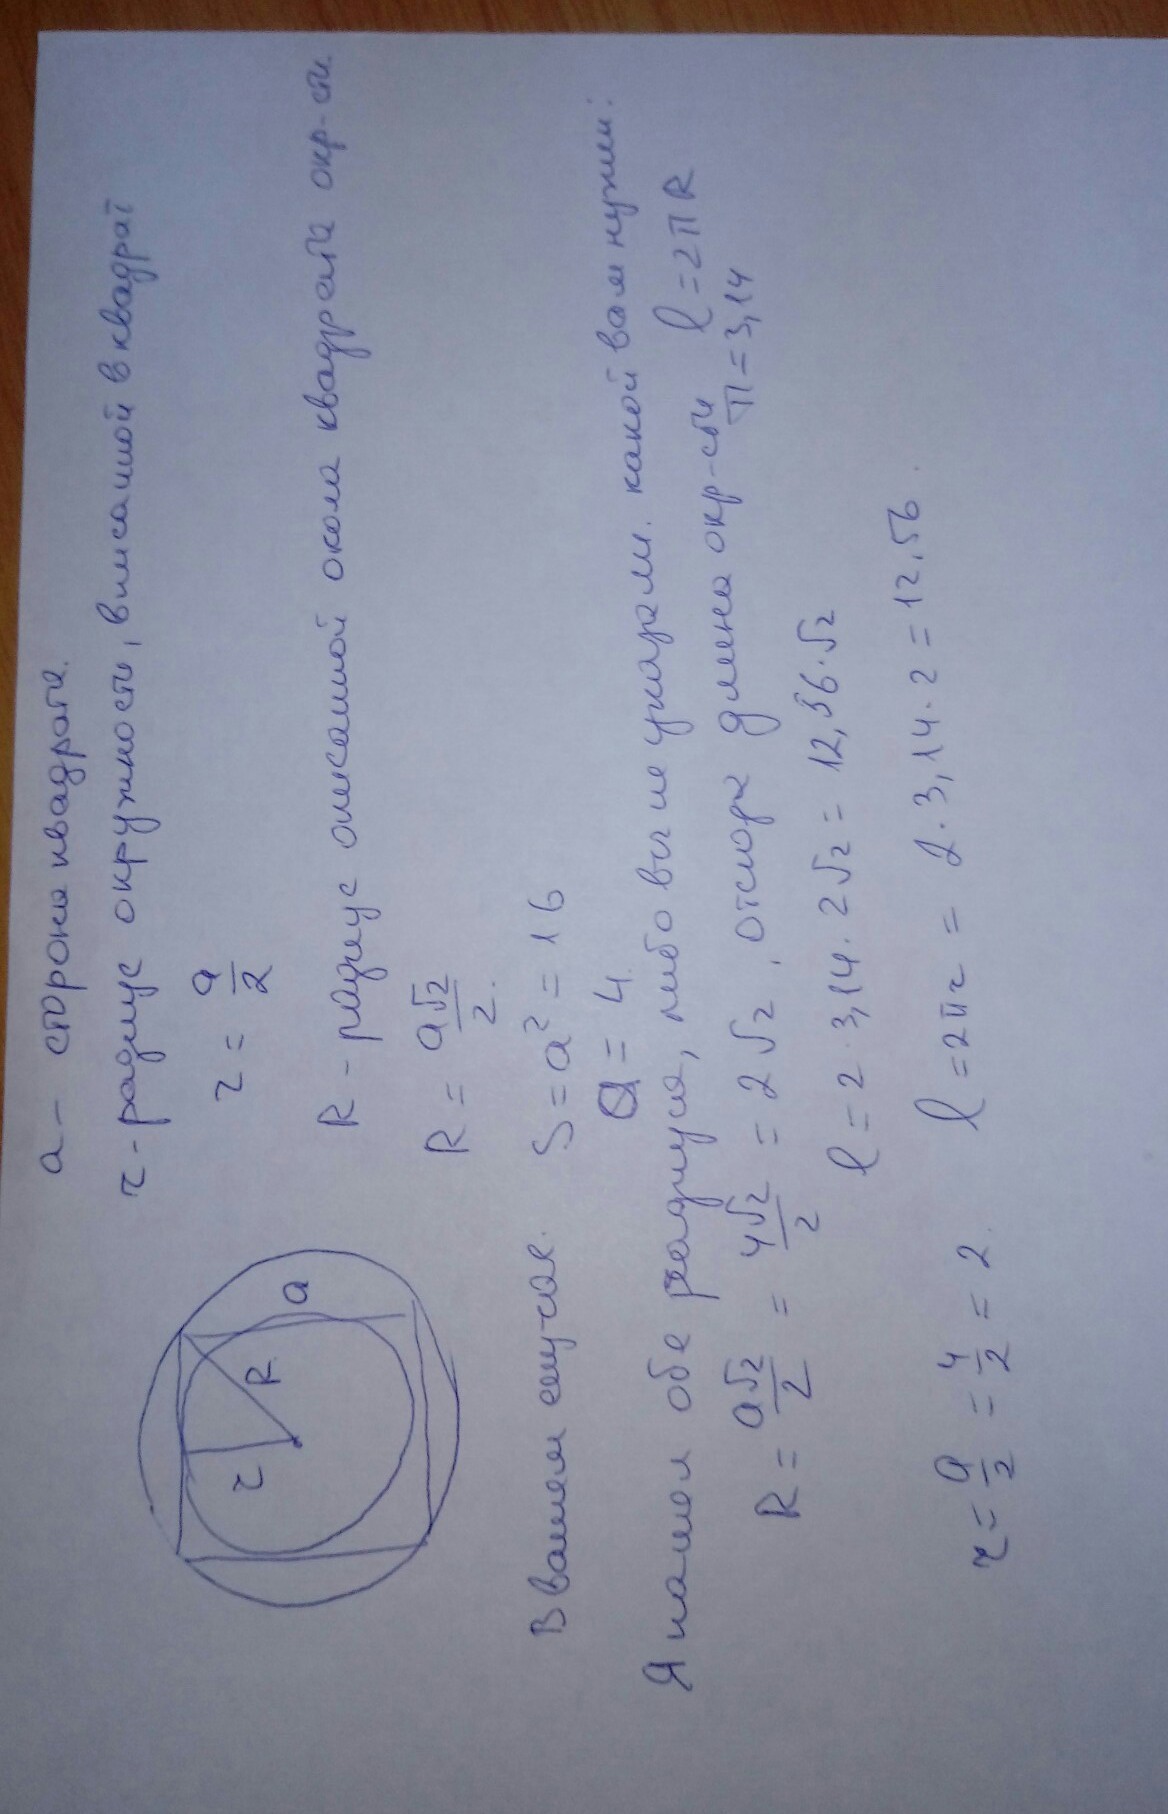 a - сторона квадрата.
r - радиус окружности, вписанной в квадрат
r = a/2
R - радиус описанной около квадрата окр-сти.
R = a√2/2.
r
R
a
В вашем случае. S = a² = 16
a = 4.
Я нашел оба радиуса, либо вы не указали. какой вам нужен:
R = a√2/2 = 4√2/2 = 2√2, отсюда длина окр-сти l = 2πR
π = 3,14
l = 2·3,14·2√2 = 12,56·√2
r = a/2 = 4/2 = 2. l = 2πr = 2·3,14·2 = 12,56.